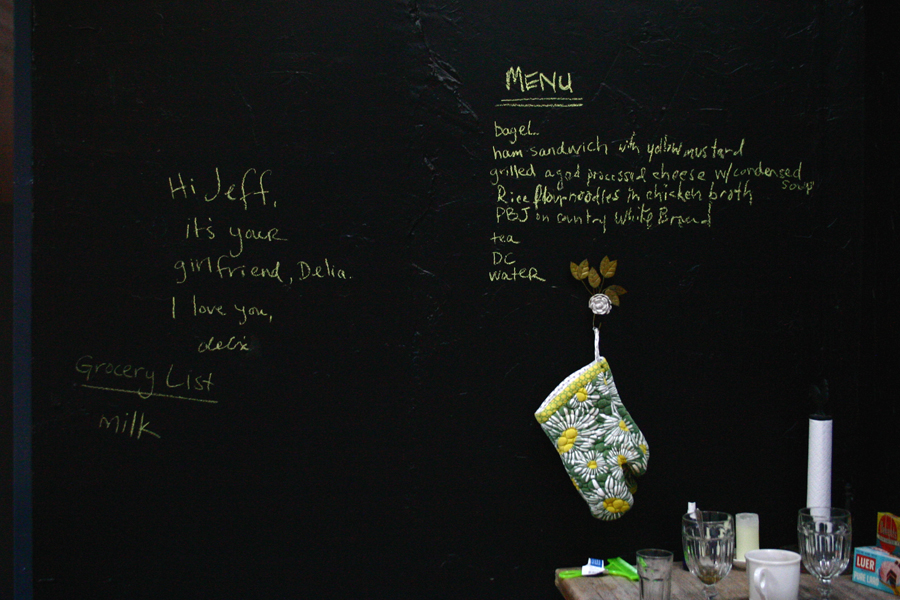 Hi Jeff,
it's your
girlfriend, Delia.
I love you,
delia
Grocery List
milk
MENU
bagel..
ham sandwich with yellow mustard
grilled aged processed cheese w/condensed
soup
Rice flour noodles in chicken broth
PBJ on country White Bread
tea
DC
water
LUER
PURE LARD